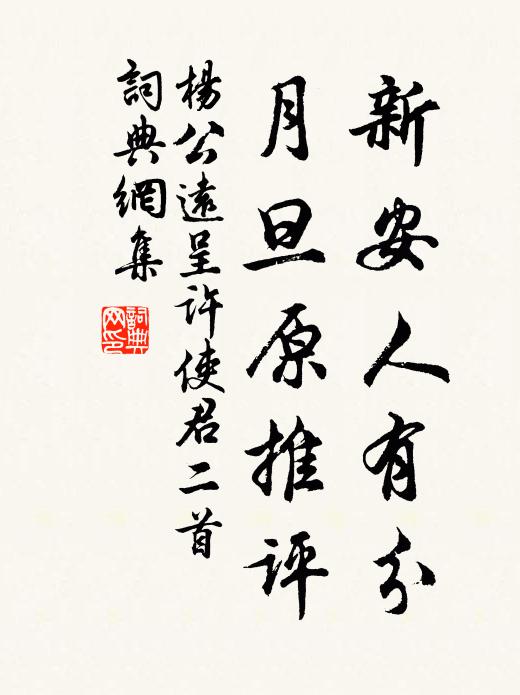 新安人有分
月旦原推評
楊公遠呈許使君二首
詞典網集
詞典
网印